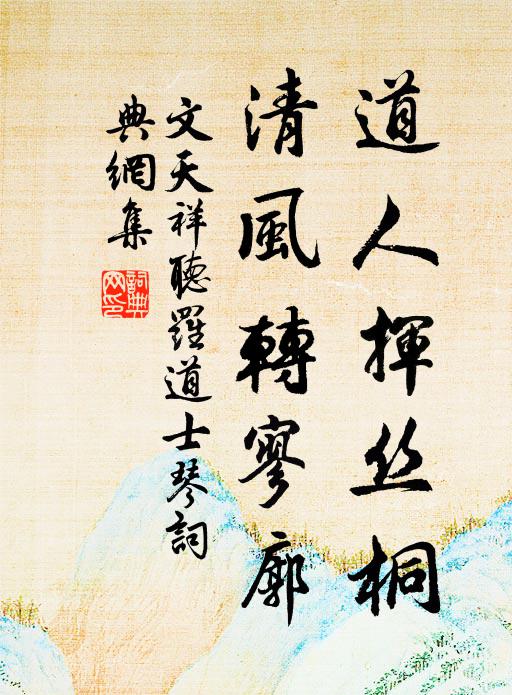 道人揮丝桐
清風轉寥廓
文天祥聽羅道士琴詞
典網集
詞典网印